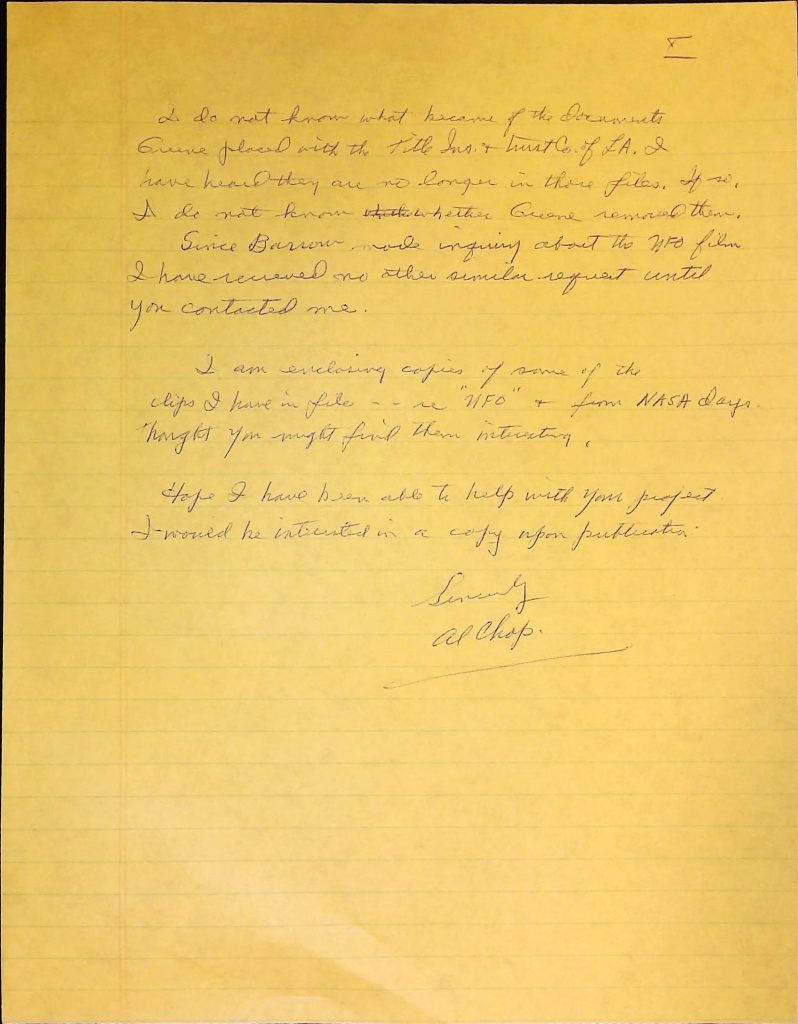 X
I do not know what became of the documents
Greene placed with the Title Ins. & Trust Co. of LA. I
have heard they are no longer in those files. If so,
I do not know whether Greene removed them.
Since Barrow made inquiry about the UFO film
I have recieved no other similar request until
you contacted me.
I am enclosing copies of some of the
clips I have in file -- re "UFO" & from NASA days.
Thought you might find them interesting.
Hope I have been able to help with your project
I would be interested in a copy upon publication.
Sincerely
Al Chop.